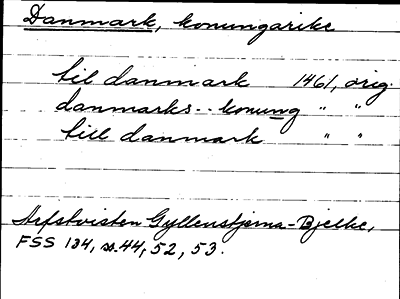 Danmark, konungarike
til danmark 1461, orig.
danmarks.. konung " "
till danmark " "
Arfstvisten Gyllenstjerna-Bjelke,
FSS 134, s. 44, 52, 53.